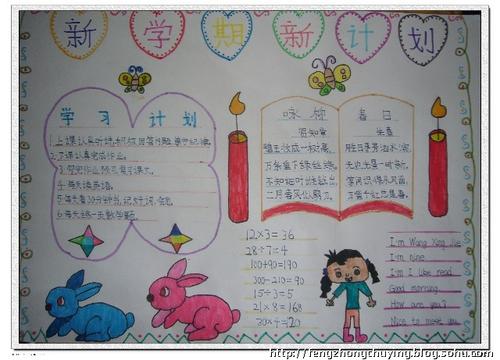 新学期新计划
学习计划
1.上课认真听讲积极回答问题,
2.下课认真完成作业。
4.每天读英语。
6.每天练一页数学题。
咏柳
贺知章
碧玉妆成一树高,
万条垂下绿丝绦。
不知细叶谁裁出,
二月春风似剪刀。
春日
朱熹
胜日寻芳泗水滨,
无边光景一时新。
等闲识得东风面,
万紫千红总是春。
12×3=36
28÷7=4
100+90=190
300-210=90
15÷3=5
21×8=168
30×4=120
I'm Wang Xing Jie
I'm nine.
I'm I like read.
Good morning.
How are you?
Nice to meet you.
http://fengzhongchuying.blog.sohu.com